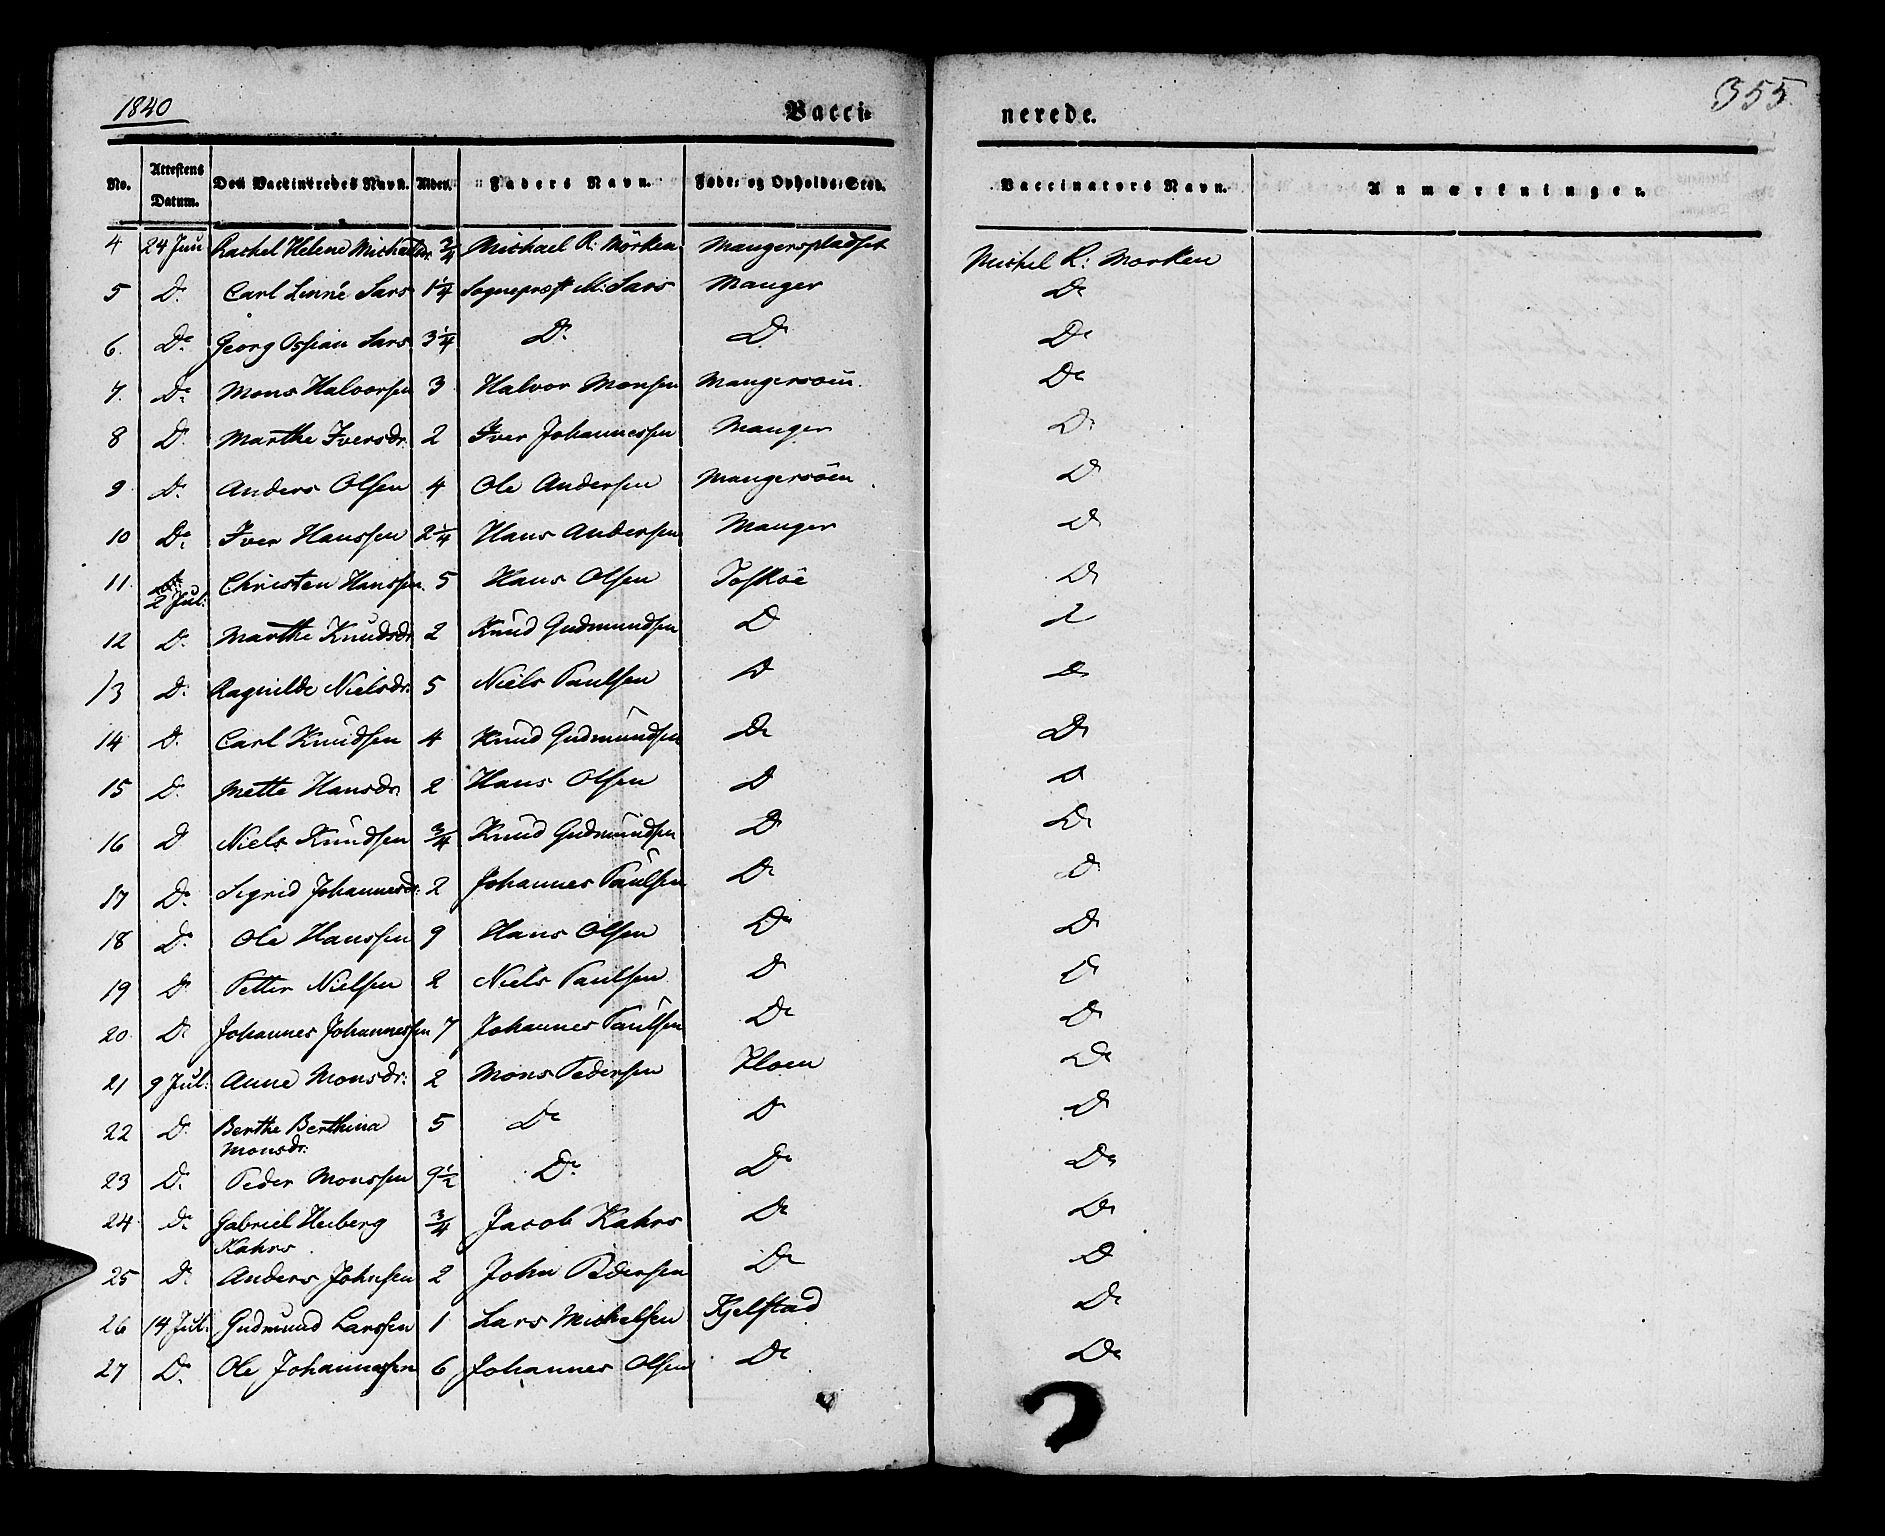 1840 Vacci- nerede. 355
No. Attestens Datum. Den Vaccineredes Navn. Alder. Faders Navn. Føde- og Opholds-Sted. Vaccinators Navn. Anmærkninger.
4 24 Juni Rachel Helene Michelsdr. 3/4 Michael R: Mörken Mangerspladset Michel R: Morken
5 Do Carl Linné Sars 1 1/4 Sognepræst M: Sars Manger Do
6. Do Georg Ossian Sars 3 1/4 Do Do Do
7. Do Mons Halvorsen 3 Halvor Monsen Mangersöen. Do
8 Do Marthe Iversdr. 2 Iver Johannessen Manger Do
9 Do Anders Olsen 4 Ole Andersen Mangersöen Do
10 Do Iver Hanssen 2 1/4 Hans Andersen Manger Do
11. 2 Jul: Christen Hanssen. 5 Hans Olsen Toskøe Do
12 Do Marthe Knudsdr. 2 Knud Gudmundsen Do Do
13 Do Ragnilde Nielsdr. 5 Niels Paulsen Do Do
14 Do Carl Knudsen 4 Knud Gudmundsen Do Do
15 Do Mette Hansdr. 2 Hans Olsen Do Do
16 Do Niels Knudsen 3/4 Knud Gudmundsen Do Do
17 Do Sigrid Johannesdr. 2 Johannes Paulsen Do Do
18 Do Ole Hanssen 9 Hans Olsen Do Do
19 Do Petter Nielsen 2 Niels Paulsen Do Do
20 Do Johannes Johannessen 7 Johannes Paulsen Do Do
21 9 Jul: Anne Monsdr: 2 Mons Pedersen Floen Do
22 Do Berthe Berthina 5 Do Do Do
Monsdr:
23 Do Peder Monssen 9 1/2 Do Do Do
24 Do Gabriel Heiberg 3/4 Jacob Kahrs Do Do
Kahrs.
25 Do Anders Johnsen 2 John Pedersen Do Do
26 14 Jul: Gudmund Larssen 1 Lars Michelsen Kjelstad Do
27 Do Ole Johannessen 6 Johannes Olsen Do Do